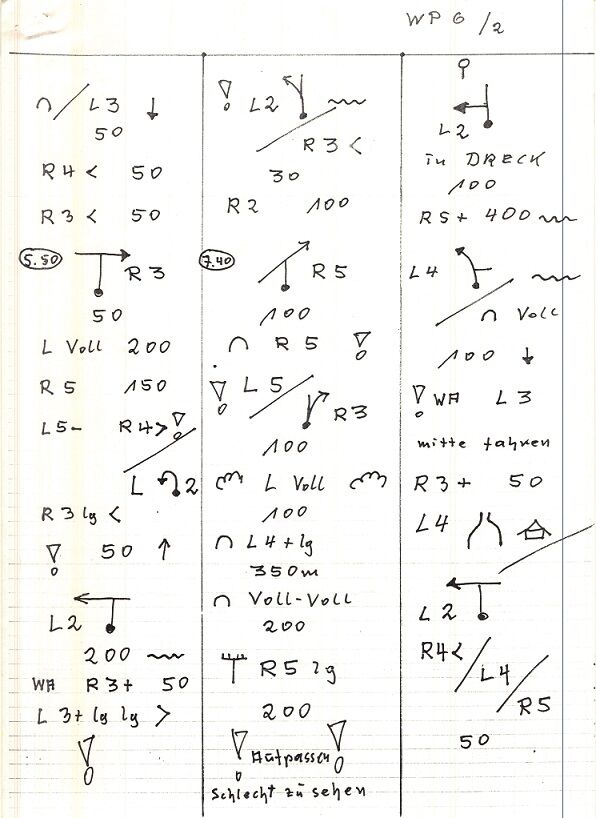 WP 6/2
∩ / L3 ↓
50
R4 < 50
R3 < 50
5.50 R3
50
L Voll 200
R5 150
L5- R4>
L 2
R3 lg <
50 ↑
L2
200
WA R3+ 50
L 3+ lg lg >
L2
R3 <
30
R2 100
7.40 R5
100
∩ R5
L5 /
R3
100
L Voll
100
∩ L4+lg
350m
∩ Voll-Voll
200
R5 lg
200
Aufpassen
Schlecht zu sehen
L2
in DRECK
100
R5+ 400
L4
∩ Voll
100 ↓
WA L3
mitte fahren
R3+ 50
L4
L2
R4< / L4 / R5
50